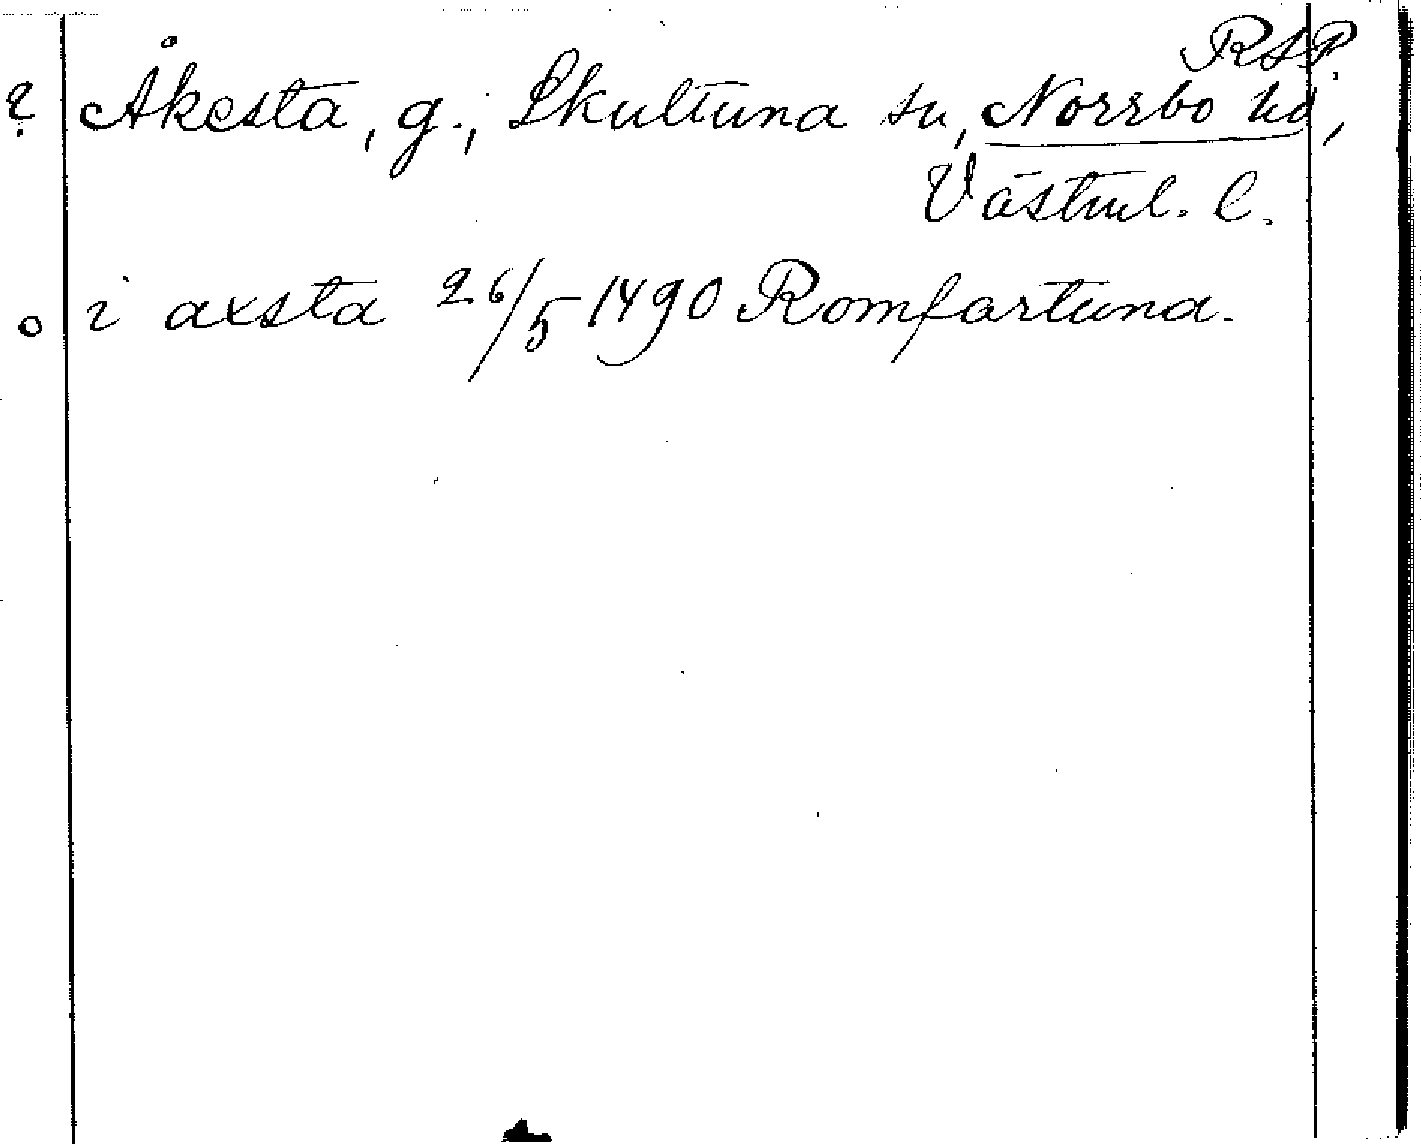 RSP
? Åkesta, g., Skultuna sn, Norrbo hd,
Västml. l.
o i axsta 26/5 1490 Romfartuna.